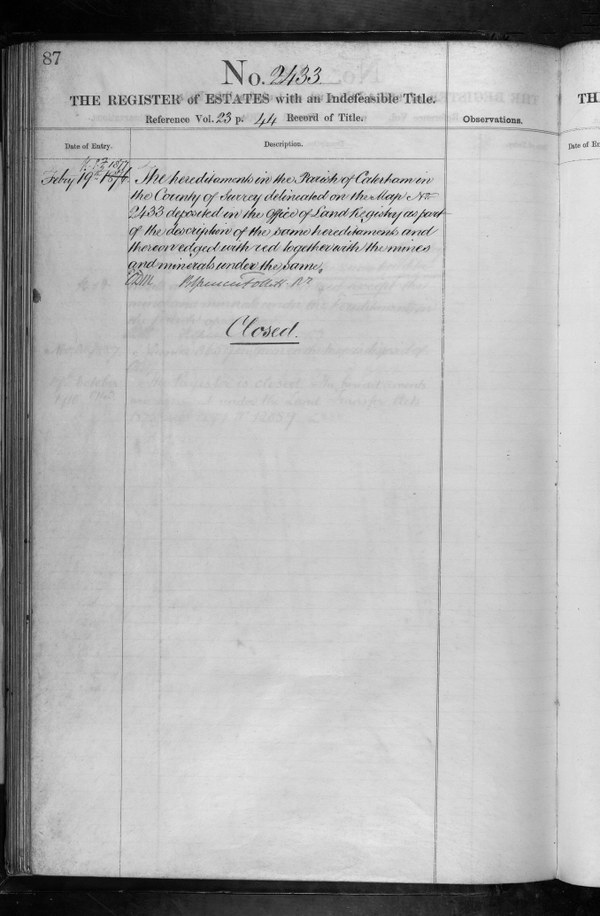 87
No. 2433
THE REGISTER of ESTATES with an Indefeasible Title.
Reference Vol. 23 p. 44 Record of Title.
Observations.
Date of Entry.
Description.
1877
Feby 19th 1876
The hereditaments in the Parish of Caterham in
the County of Surrey delineated on the Map No
2433 deposited in the Office of Land Registry as part
of the description of the same hereditaments and
thereon edged with red together with the mines
and minerals under the same.
Closed.
TH
Date of En